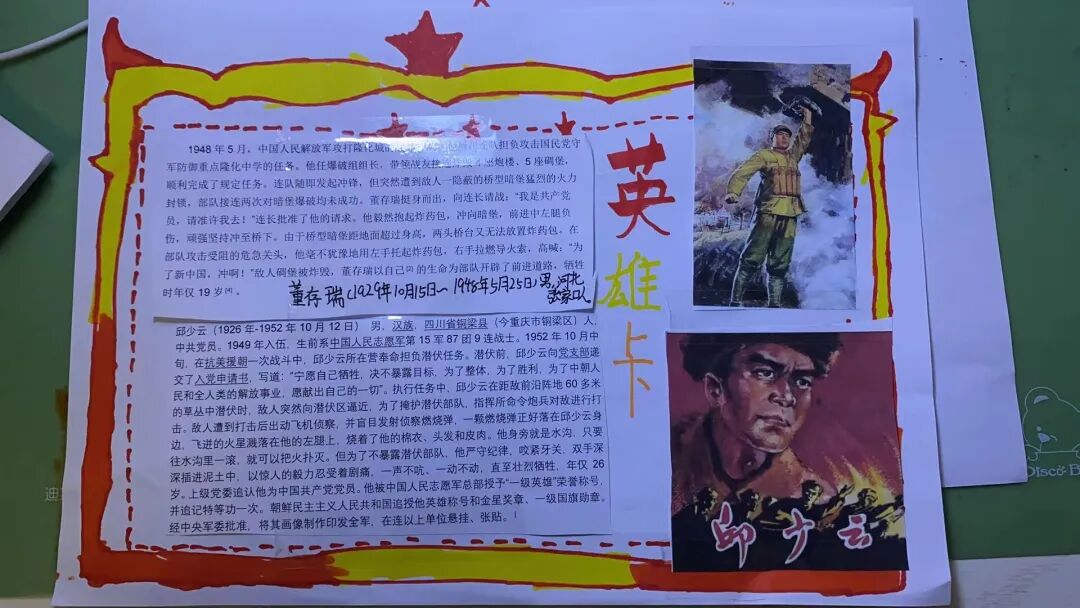 1948年5月，中国人民解放军攻打隆化城的
担负攻击国民党守
军防御重点隆化中学的任务。他任爆破组组长，带领战友接连
炮楼、5座碉堡，
顺利完成了规定任务。连队随即发起冲锋，但突然遭到敌人一隐蔽的桥型暗堡猛烈的火力
封锁，部队接连两次对暗堡爆破均未成功。董存瑞挺身而出，向连长请战：“我是共产党
员，请准许我去！”连长批准了他的请求。他毅然抱起炸药包，冲向暗堡，前进中左腿负
伤，顽强坚持冲至桥下。由于桥型暗堡距地面超过身高，两头桥台又无法放置炸药包。在
部队攻击受阻的危急关头，他毫不犹豫地用左手托起炸药包，右手拉燃导火索，高喊：“为
了新中国，冲啊！”敌人碉堡被炸毁，董存瑞以自己的生命为部队开辟了前进道路，牺牲
时年仅19岁。
董存瑞（1929年10月15日～1948年5月25日）男，河北
张家口人
邱少云（1926年-1952年10月12日）男，汉族，四川省铜梁县（今重庆市铜梁区）人，
中共党员。1949年入伍，生前系中国人民志愿军第15军87团9连战士。1952年10月中
旬，在抗美援朝一次战斗中，邱少云所在营奉命担负潜伏任务。潜伏前，邱少云向党支部递
交了入党申请书，写道：“宁愿自己牺牲，决不暴露目标，为了整体，为了胜利，为了中朝人
民和全人类的解放事业，愿献出自己的一切”。执行任务中，邱少云在距敌前沿阵地60多米
的草丛中潜伏时，敌人突然向潜伏区逼近，为了掩护潜伏部队，指挥所命令炮兵对敌进行打
击。敌人遭到打击后出动飞机侦察，并盲目发射侦察燃烧弹，一颗燃烧弹正好落在邱少云身
边，飞进的火星溅落在他的左腿上，烧着了他的棉衣、头发和皮肉。他身旁就是水沟，只要
往水沟里一滚，就可以把火扑灭。但为了不暴露潜伏部队，他严守纪律，咬紧牙关，双手深
深插进泥土中，以惊人的毅力忍受着剧痛，一声不吭、一动不动，直至壮烈牺牲，年仅26
岁。上级党委追认他为中国共产党党员。他被中国人民志愿军总部授予“一级英雄”荣誉称号，
并追记特等功一次。朝鲜民主主义人民共和国追授他英雄称号和金星奖章、一级国旗勋章。
经中央军委批准，将其画像制作印发全军，在连以上单位悬挂、张贴。
英
雄
卡
邱少云
Disco B
迪